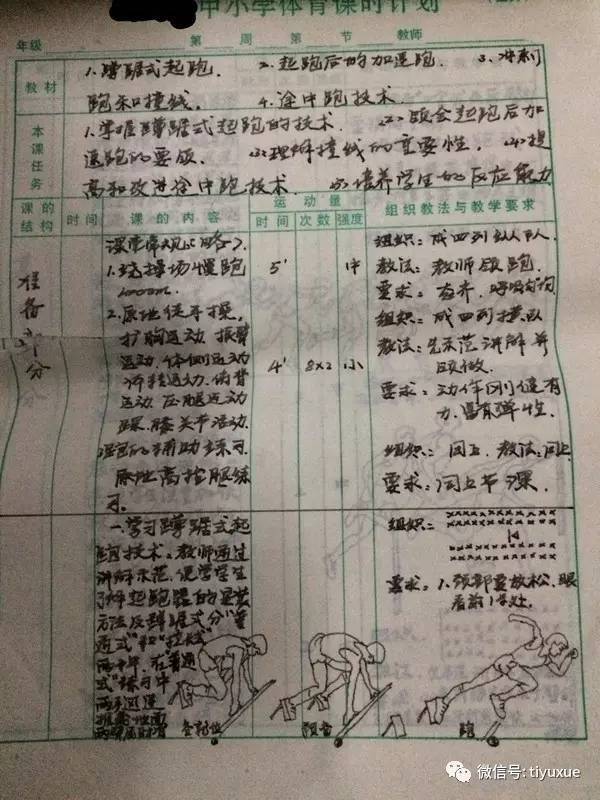 中小学体育课时计划
年级 第 周 第 节 教师
教材
1.蹲踞式起跑. 2.起跑后的加速跑. 3.冲刺
跑和撞线. 4.途中跑技术.
本课任务
1.掌握蹲踞式起跑的技术. (2)领会起跑后加
速跑的要领. (3)理解撞线的重要性. (4)提
高和改进途中跑技术. (5)培养学生的反应能力
课的结构 时间 课的内容 运动量 组织教法与教学要求
时间 次数 强度
准备部分
课堂常规(略).
1.绕操场慢跑
5' 中
2.原地徒手操.
扩胸运动.振臂
运动.体侧运动
体转运动.俯背
运动.压腿运动
膝关节活动.
跑的辅助练习.
原地高抬腿练
习.
4' 8×2 小
组织:成四列纵队.
教法:教师领跑.
要求:看齐.呼吸均匀
组织:成四列横队
教法:先示范讲解并
领做.
要求:动作刚健有
力.富有弹性.
组织:同上.教法:同上
要求:同上节课.
一.学习蹲踞式起
跑技术.教师通过
讲解示范.使学生
了解起跑器的安装
方法及蹲踞式分"普
通式"和"拉长式"
两种.在"普通
式"练习中
组织:
要求:1.颈部要放松.眼
看前1米处.
各就位 预备 跑
微信号: tiyuxue